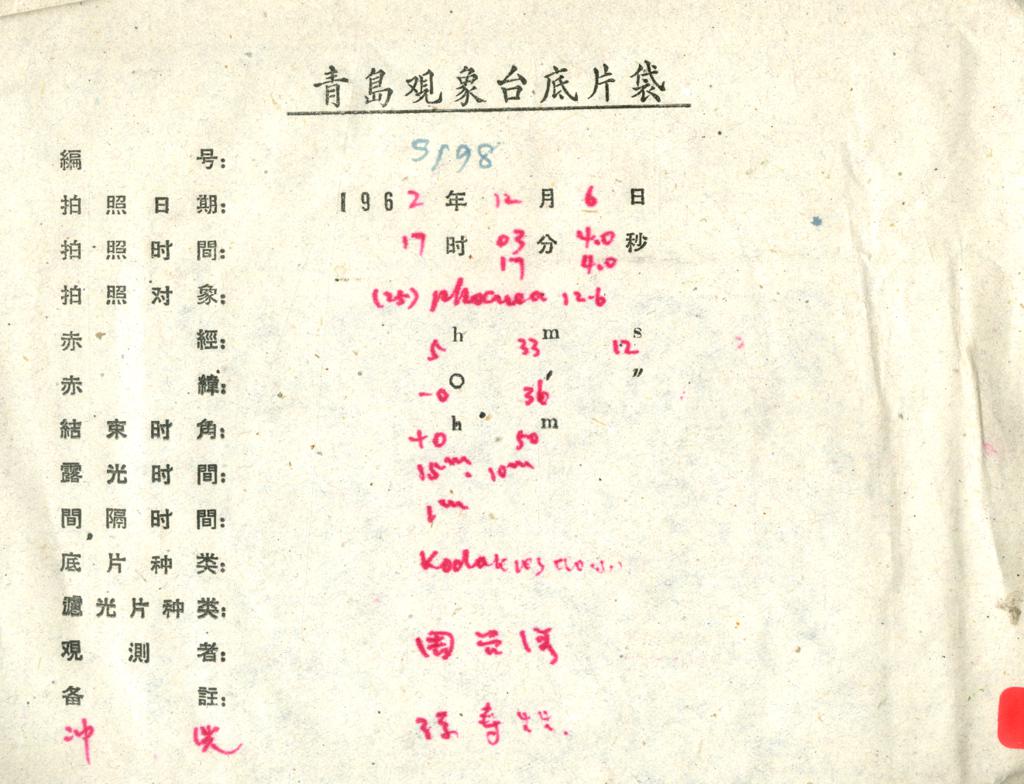 青島观象台底片袋
編 号: S198
拍照日期: 1962年12月6日
拍照时間: 17时03分40秒
17 40
拍照对象: (25) phocaea 12-6
赤 經: 5h 33m 12s
赤 緯: -0° 36′ ″
結束时角: +0h 50m
露光时間: 15m. 10m
間隔时間: 1m
底片种类: Kodak
濾光片种类:
观測者: 周
备 註:
冲 洗 孫寿